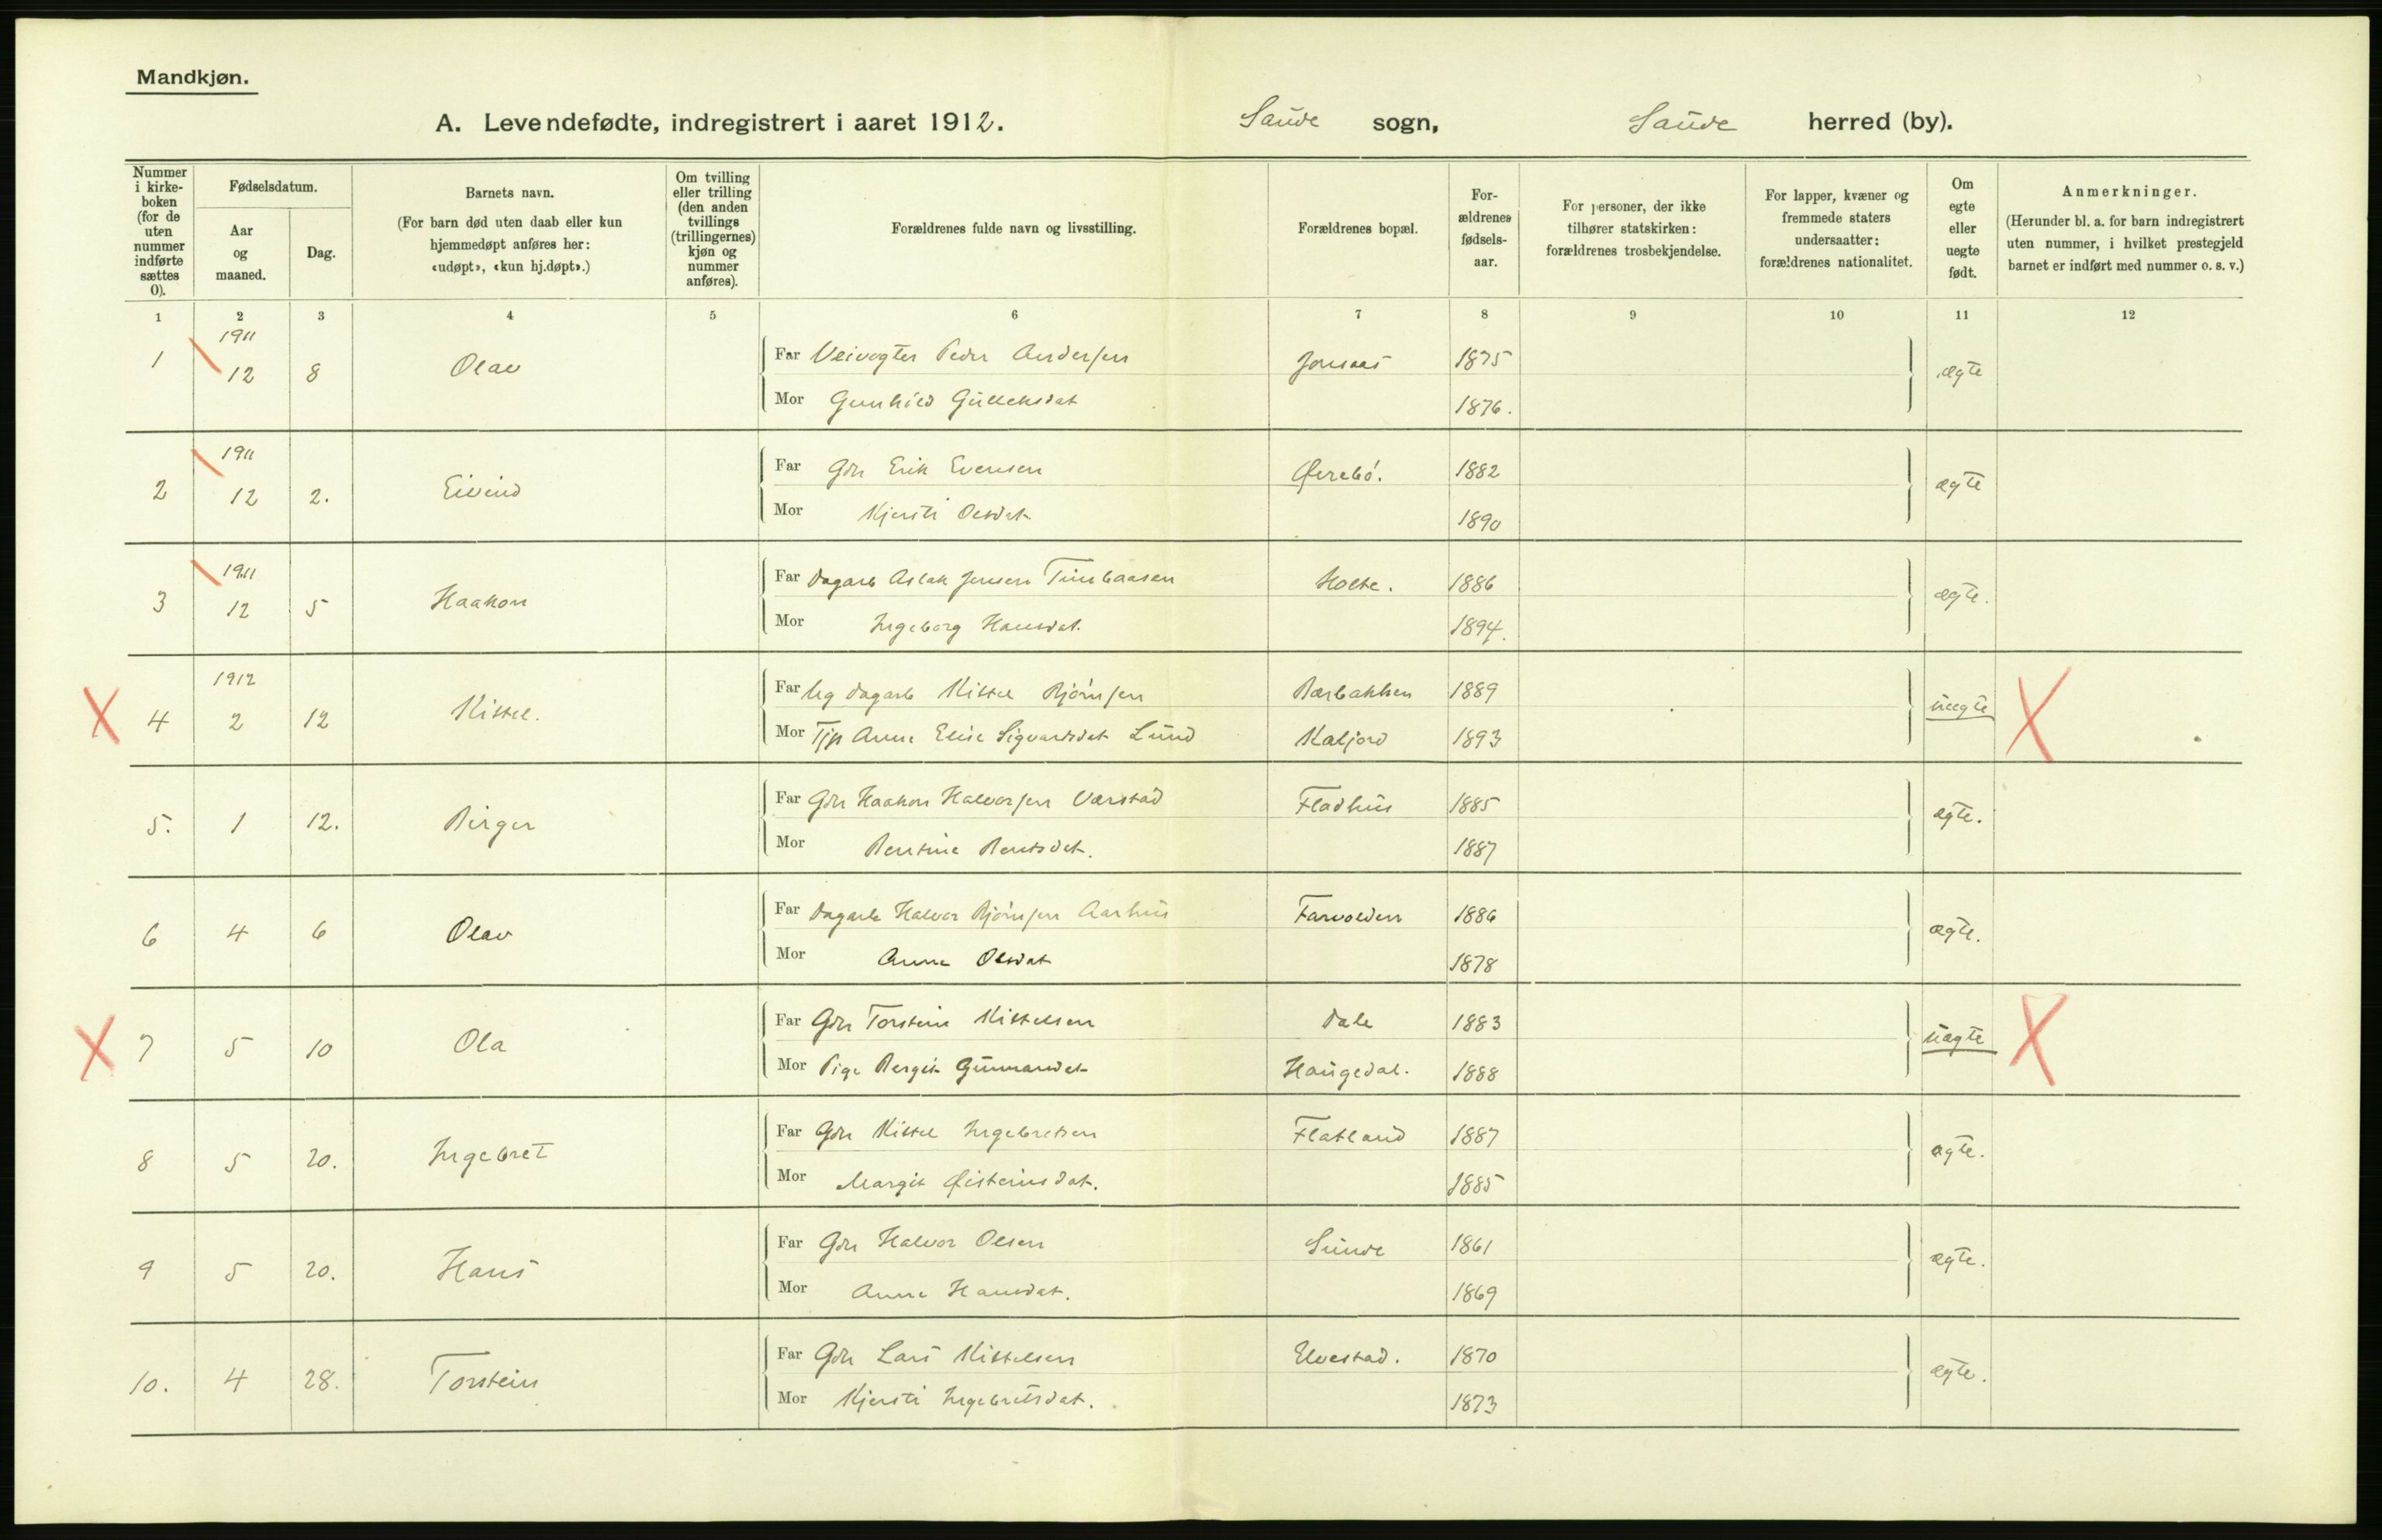 Mandkjøn.
A. Levendefødte, indregistrert i aaret 1912. Saude sogn, Saude herred (by).
Nummer i kirke-boken (for de uten nummer indførte sættes 0).
Fødselsdatum.
Aar og maaned.
Dag.
Barnets navn.
(For barn død uten daab eller kun hjemmedøpt anføres her: «udøpt», «kun hj.døpt».)
Om tvilling eller trilling (den anden tvillings (trillingernes) kjøn og nummer anføres).
Forældrenes fulde navn og livsstilling.
Forældrenes bopæl.
For-ældrenes fødsels-aar.
For personer, der ikke tilhører statskirken: forældrenes trosbekjendelse.
For lapper, kvæner og fremmede staters undersaatter: forældrenes nationalitet.
Om egte eller uegte født.
Anmerkninger.
(Herunder bl. a. for barn indregistrert uten nummer, i hvilket prestegjeld barnet er indført med nummer o. s. v.)
1 2 3 4 5 6 7 8 9 10 11 12
1 1911 12 8 Olav Far Veivogter Peder Andersen Jonsaas 1875 ægte
Mor Gunhild Gulleksdat 1876.
2 1911 12 2. Eivind Far Gdr Erik Evensen Øverbö. 1882 ægte
Mor Kjersti Olsdat 1890
3 1911 12 5 Haakon Far Dagarb Aslak Jensen Holte. 1886 ægte.
Mor Ingeborg Hansdat. 1894.
X 4 1912 2 12 Kittel. Far Ug dagarb Kittel Björnsen Bærbakken 1889 uegte X
Mor Tjp Anne Elise Sigvardsdat Lund Kaljord 1893
5. 1 12. Birger Far Gdr Haakon Halvorsen Værstad Fladhus 1885 ægte.
Mor Bentine Bentsdat. 1887
6 4 6 Olav Far Dagarb Halvor Björnsen Aarhus Farvolden 1886 ægte.
Mor Anne Olsdat 1878
X 7 5 10 Ola Far Gdr Torstein Kittelsen Dale 1883 uægte X
Mor Pige Bergit Gunnarsdat Haugedal. 1888
8 5 20. Ingebret Far Gdr Kittel Ingebretsen Flatland 1887 ægte.
Mor Margit Øisteinsdat. 1885
9 5 20. Hans Far Gdr Halvor Olsen Sunde 1861 ægte.
Mor Anne Hansdat. 1869
10. 4 28. Torstein Far Gdr Lars Kittelsen Elvestad. 1870 ægte.
Mor Kjersti Ingebretsdat. 1873